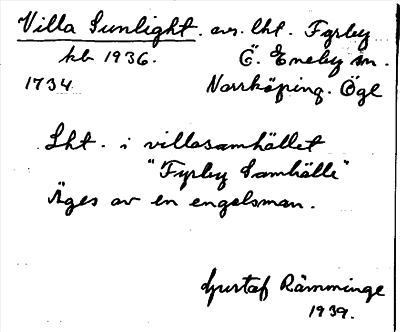 Villa Sunlight. avs. lht. Fyrby
kb 1936. Ö. Eneby sn.
1734. Norrköping. Ögl
Lht. i villasamhället
"Fyrby Samhälle"
Äges av en engelsman.
Gustaf Rämminge
1939.